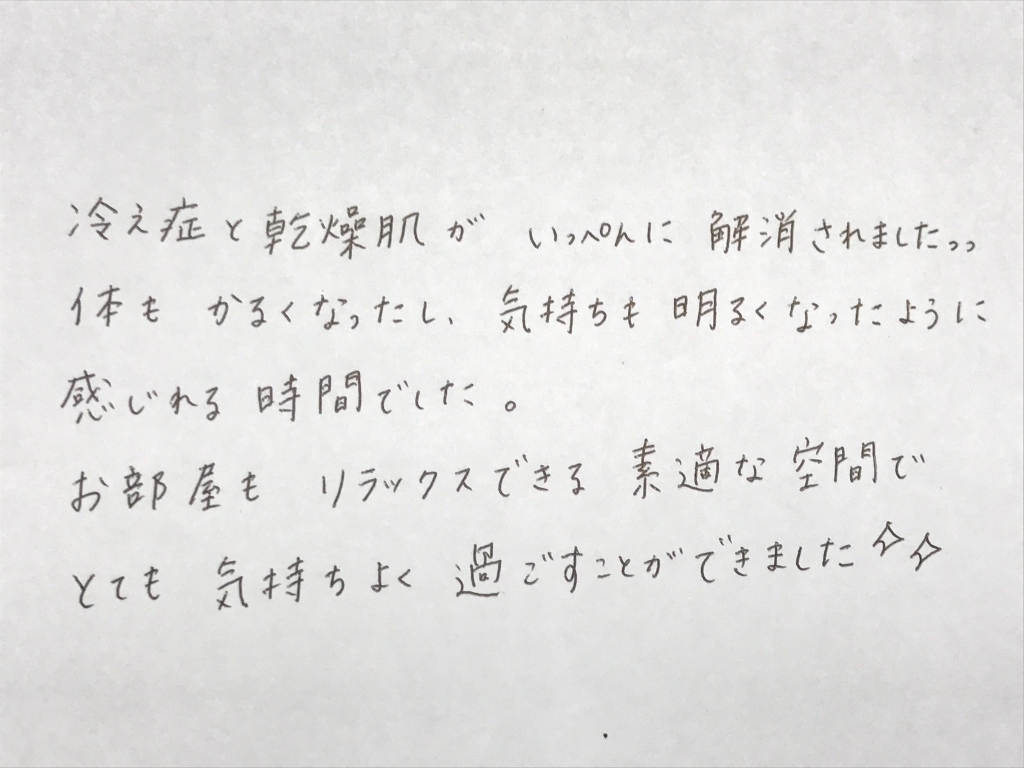 冷え症と乾燥肌が いっぺんに 解消されましたっっ
体も かるくなったし、気持ちも 明るくなったように
感じれる 時間でした。
お部屋も リラックスできる 素適な 空間で
とても 気持ちよく 過ごすことができました✧✧